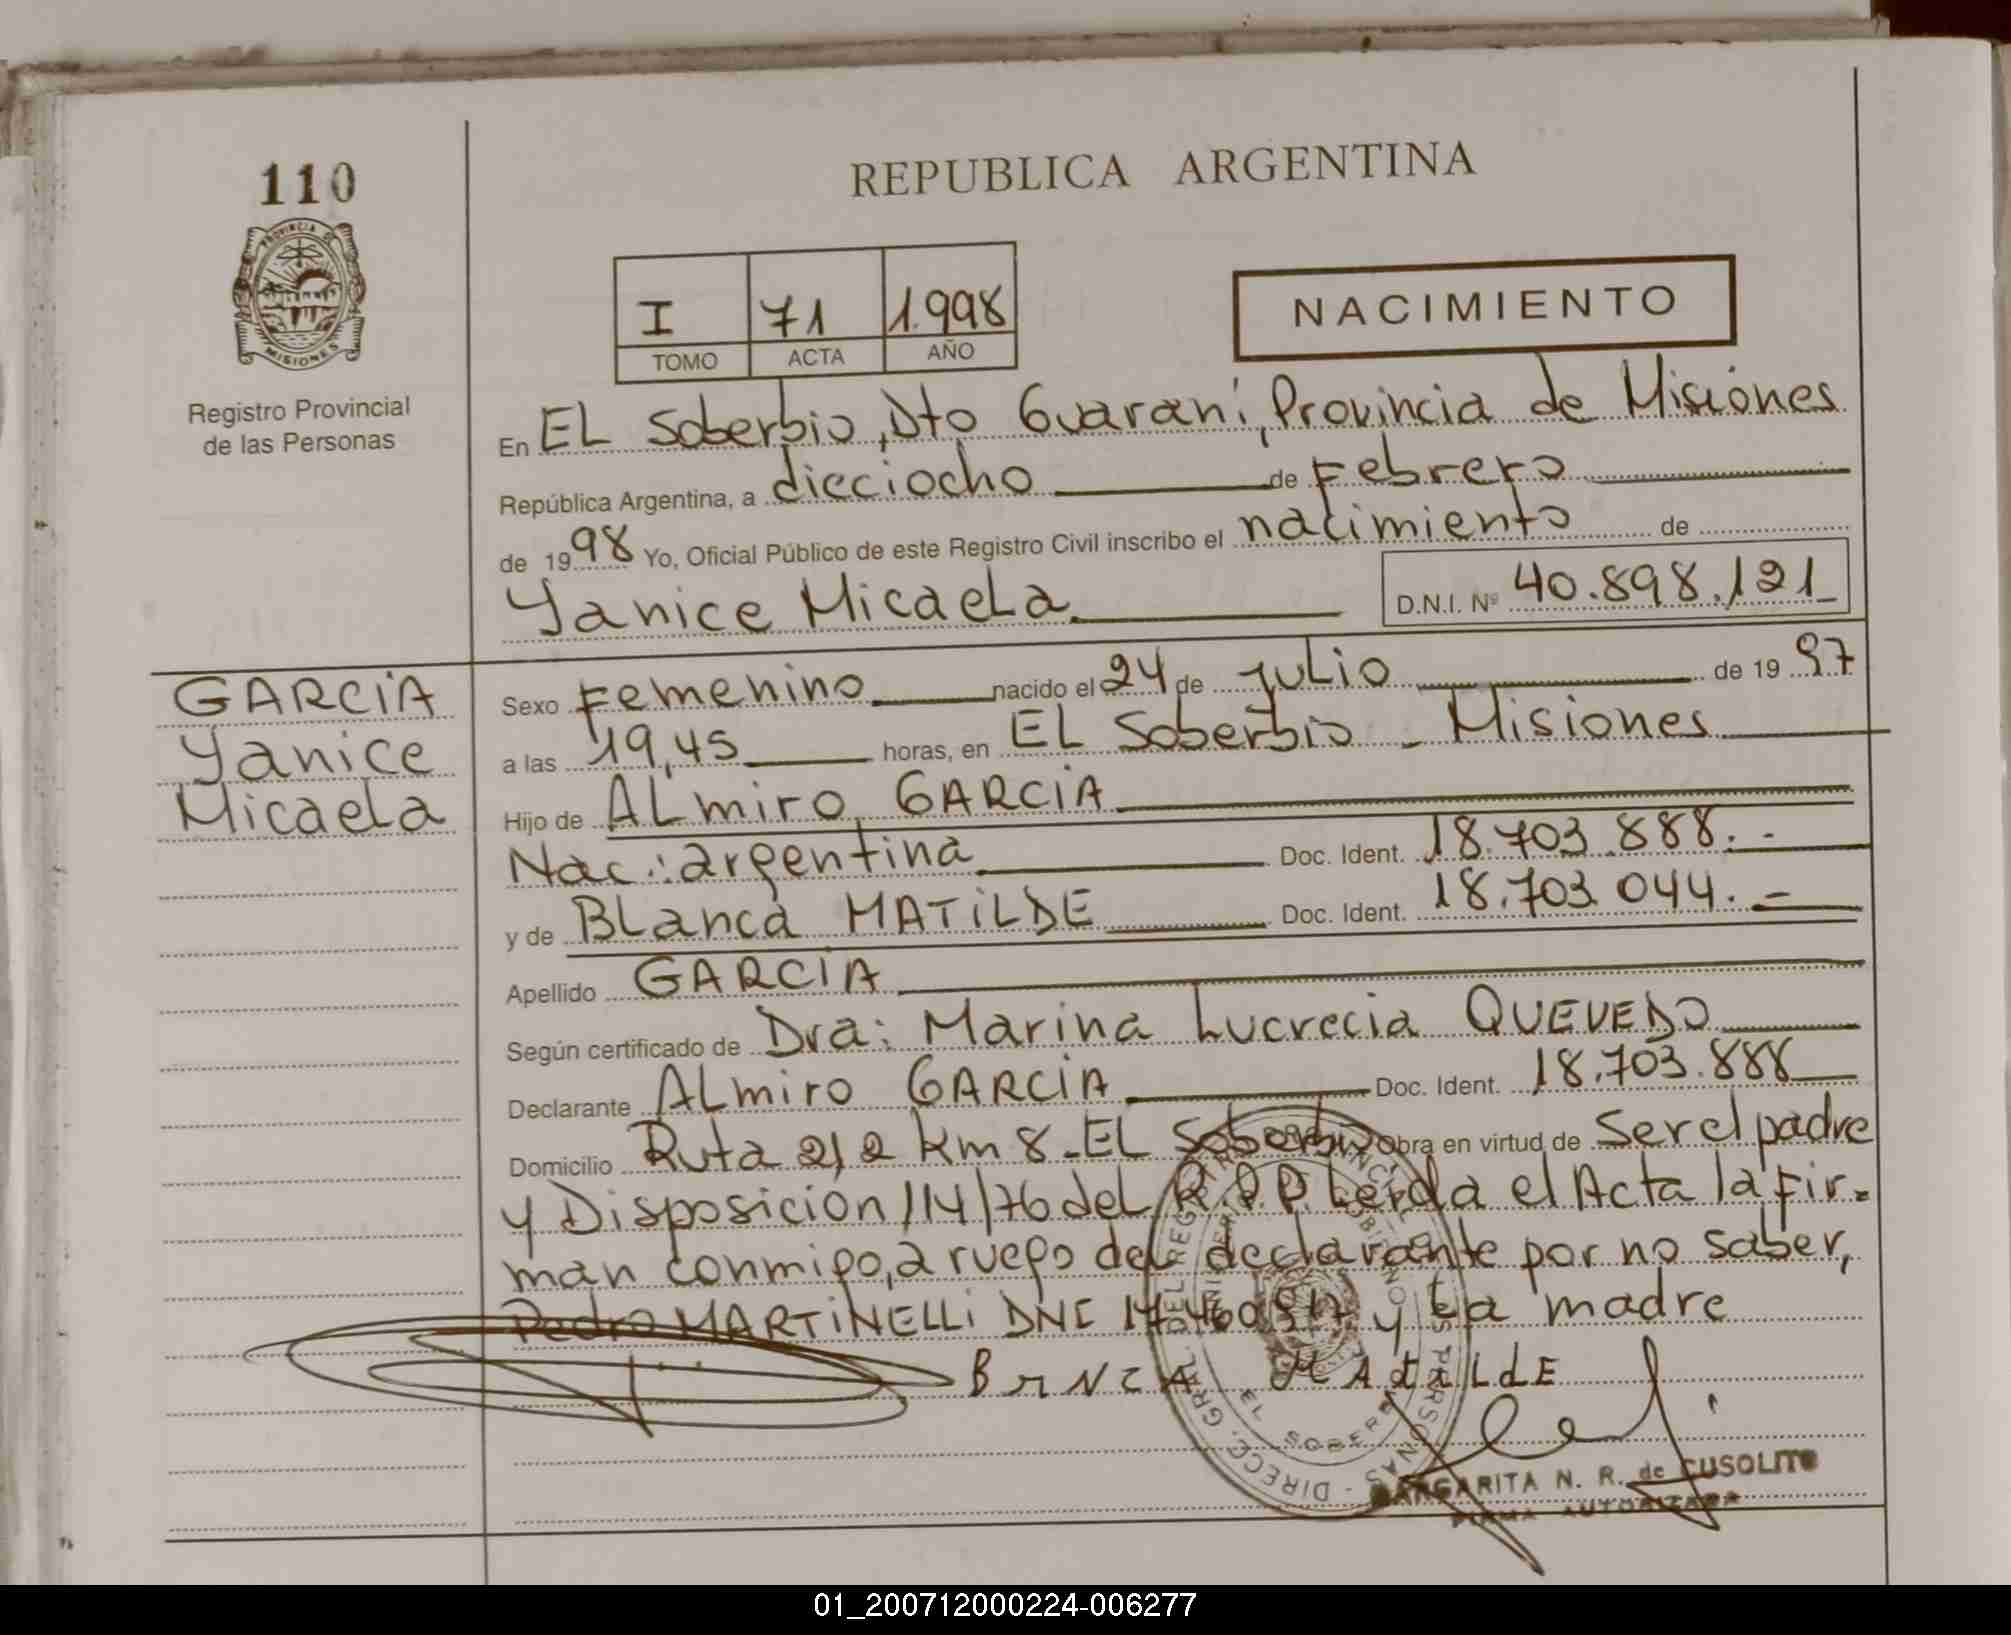 110
REPUBLICA ARGENTINA
PROVINCIA DE
MISIONES
I 71 1.998
TOMO ACTA AÑO
NACIMIENTO
Registro Provincial
de las Personas
En EL Soberbio, Dto Guaraní, Provincia de Misiones
República Argentina, a dieciocho de Febrero
de 1998 Yo, Oficial Público de este Registro Civil inscribo el nacimiento de
Yanice Micaela D.N.I. Nº 40.898.121
GARCIA
Yanice
Micaela
Sexo Femenino nacido el 24 de julio de 19 97
a las 19,45 horas, en EL Soberbio - Misiones
Hijo de ALmiro GARCIA
Nac.: argentina Doc. Ident. 18.703.888.-
y de BLanca MATILDE Doc. Ident. 18.703.044.-
Apellido GARCIA
Según certificado de Dra: Marina Lucrecia QUEVEDO
Declarante ALmiro GARCIA Doc. Ident. 18.703.888
Domicilio Ruta 212 km 8 - EL Soberbio Obra en virtud de Ser el padre
y Disposicion 114/76 del R.P.P. Leída el Acta la fir-
man conmigo, a ruego del declarante por no saber,
Pedro MARTINELLI DNI y La madre
BLNCA MAtILdE
MARGARITA N. R. de CUSOLITO
FIRMA AUTORIZADA
01_200712000224-006277